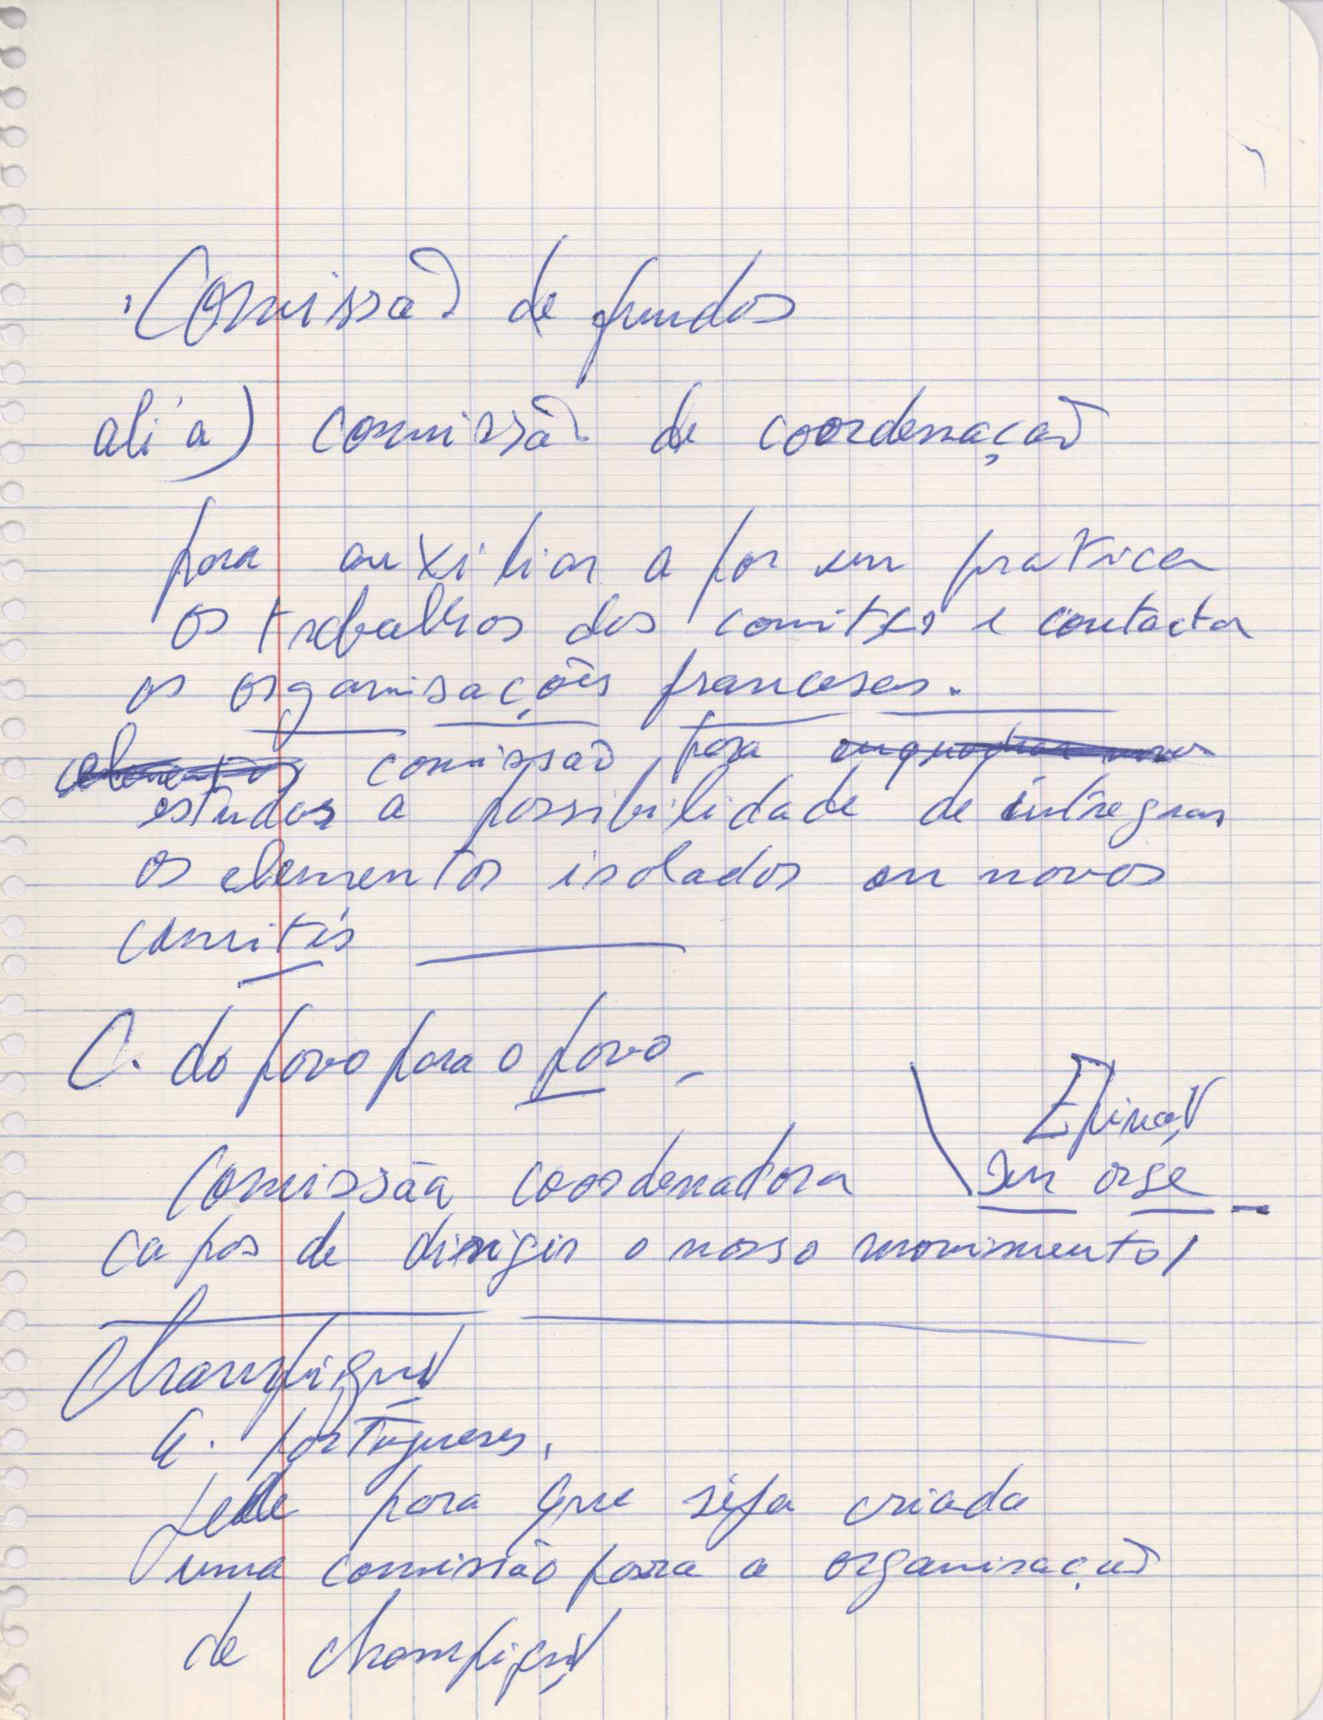 Comissaõ de fundos
ali'a) comissão de coordenaçaõ
para auxiliar a por em pratica
os trabalhos dos comités e contactar
as organisações francesas.
elementos comissaõ para
estudar a possibilidade de integrar
os elementos isolados em novos
comités
C. do povo para o povo
Epinay
Comissão coordenadora sem orge
capas de dirigir o nosso movimento
Champigny
C. portugueses.
pede para que seja criada
uma comissão para a organisaçaõ
de champigny